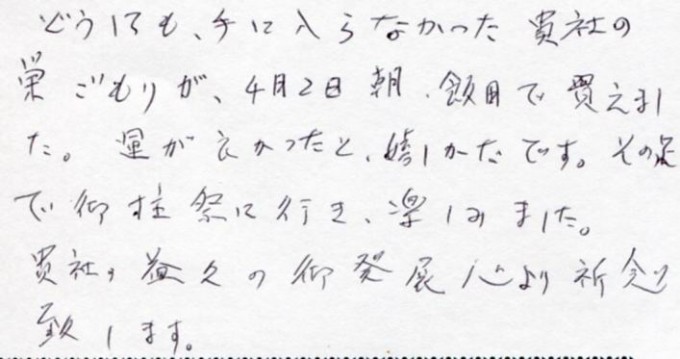 どうしても、手に入らなかった 貴社の
巣ごもりが、4月2日 朝、飯田で 買えまし
た。 運が良かったと、嬉しかたです。その足
で 御柱祭に行き、楽しみました。
貴社、益々の御発展 心より 祈念
致します。